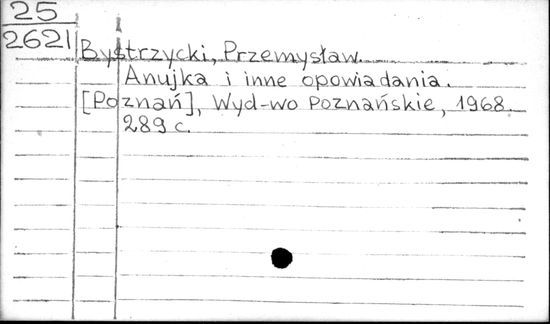 25
2621
Bystrzycki, Przemysław.
Anujka i inne opowiadania.
[Poznań], Wyd-wo Poznańskie, 1968.
289 c.